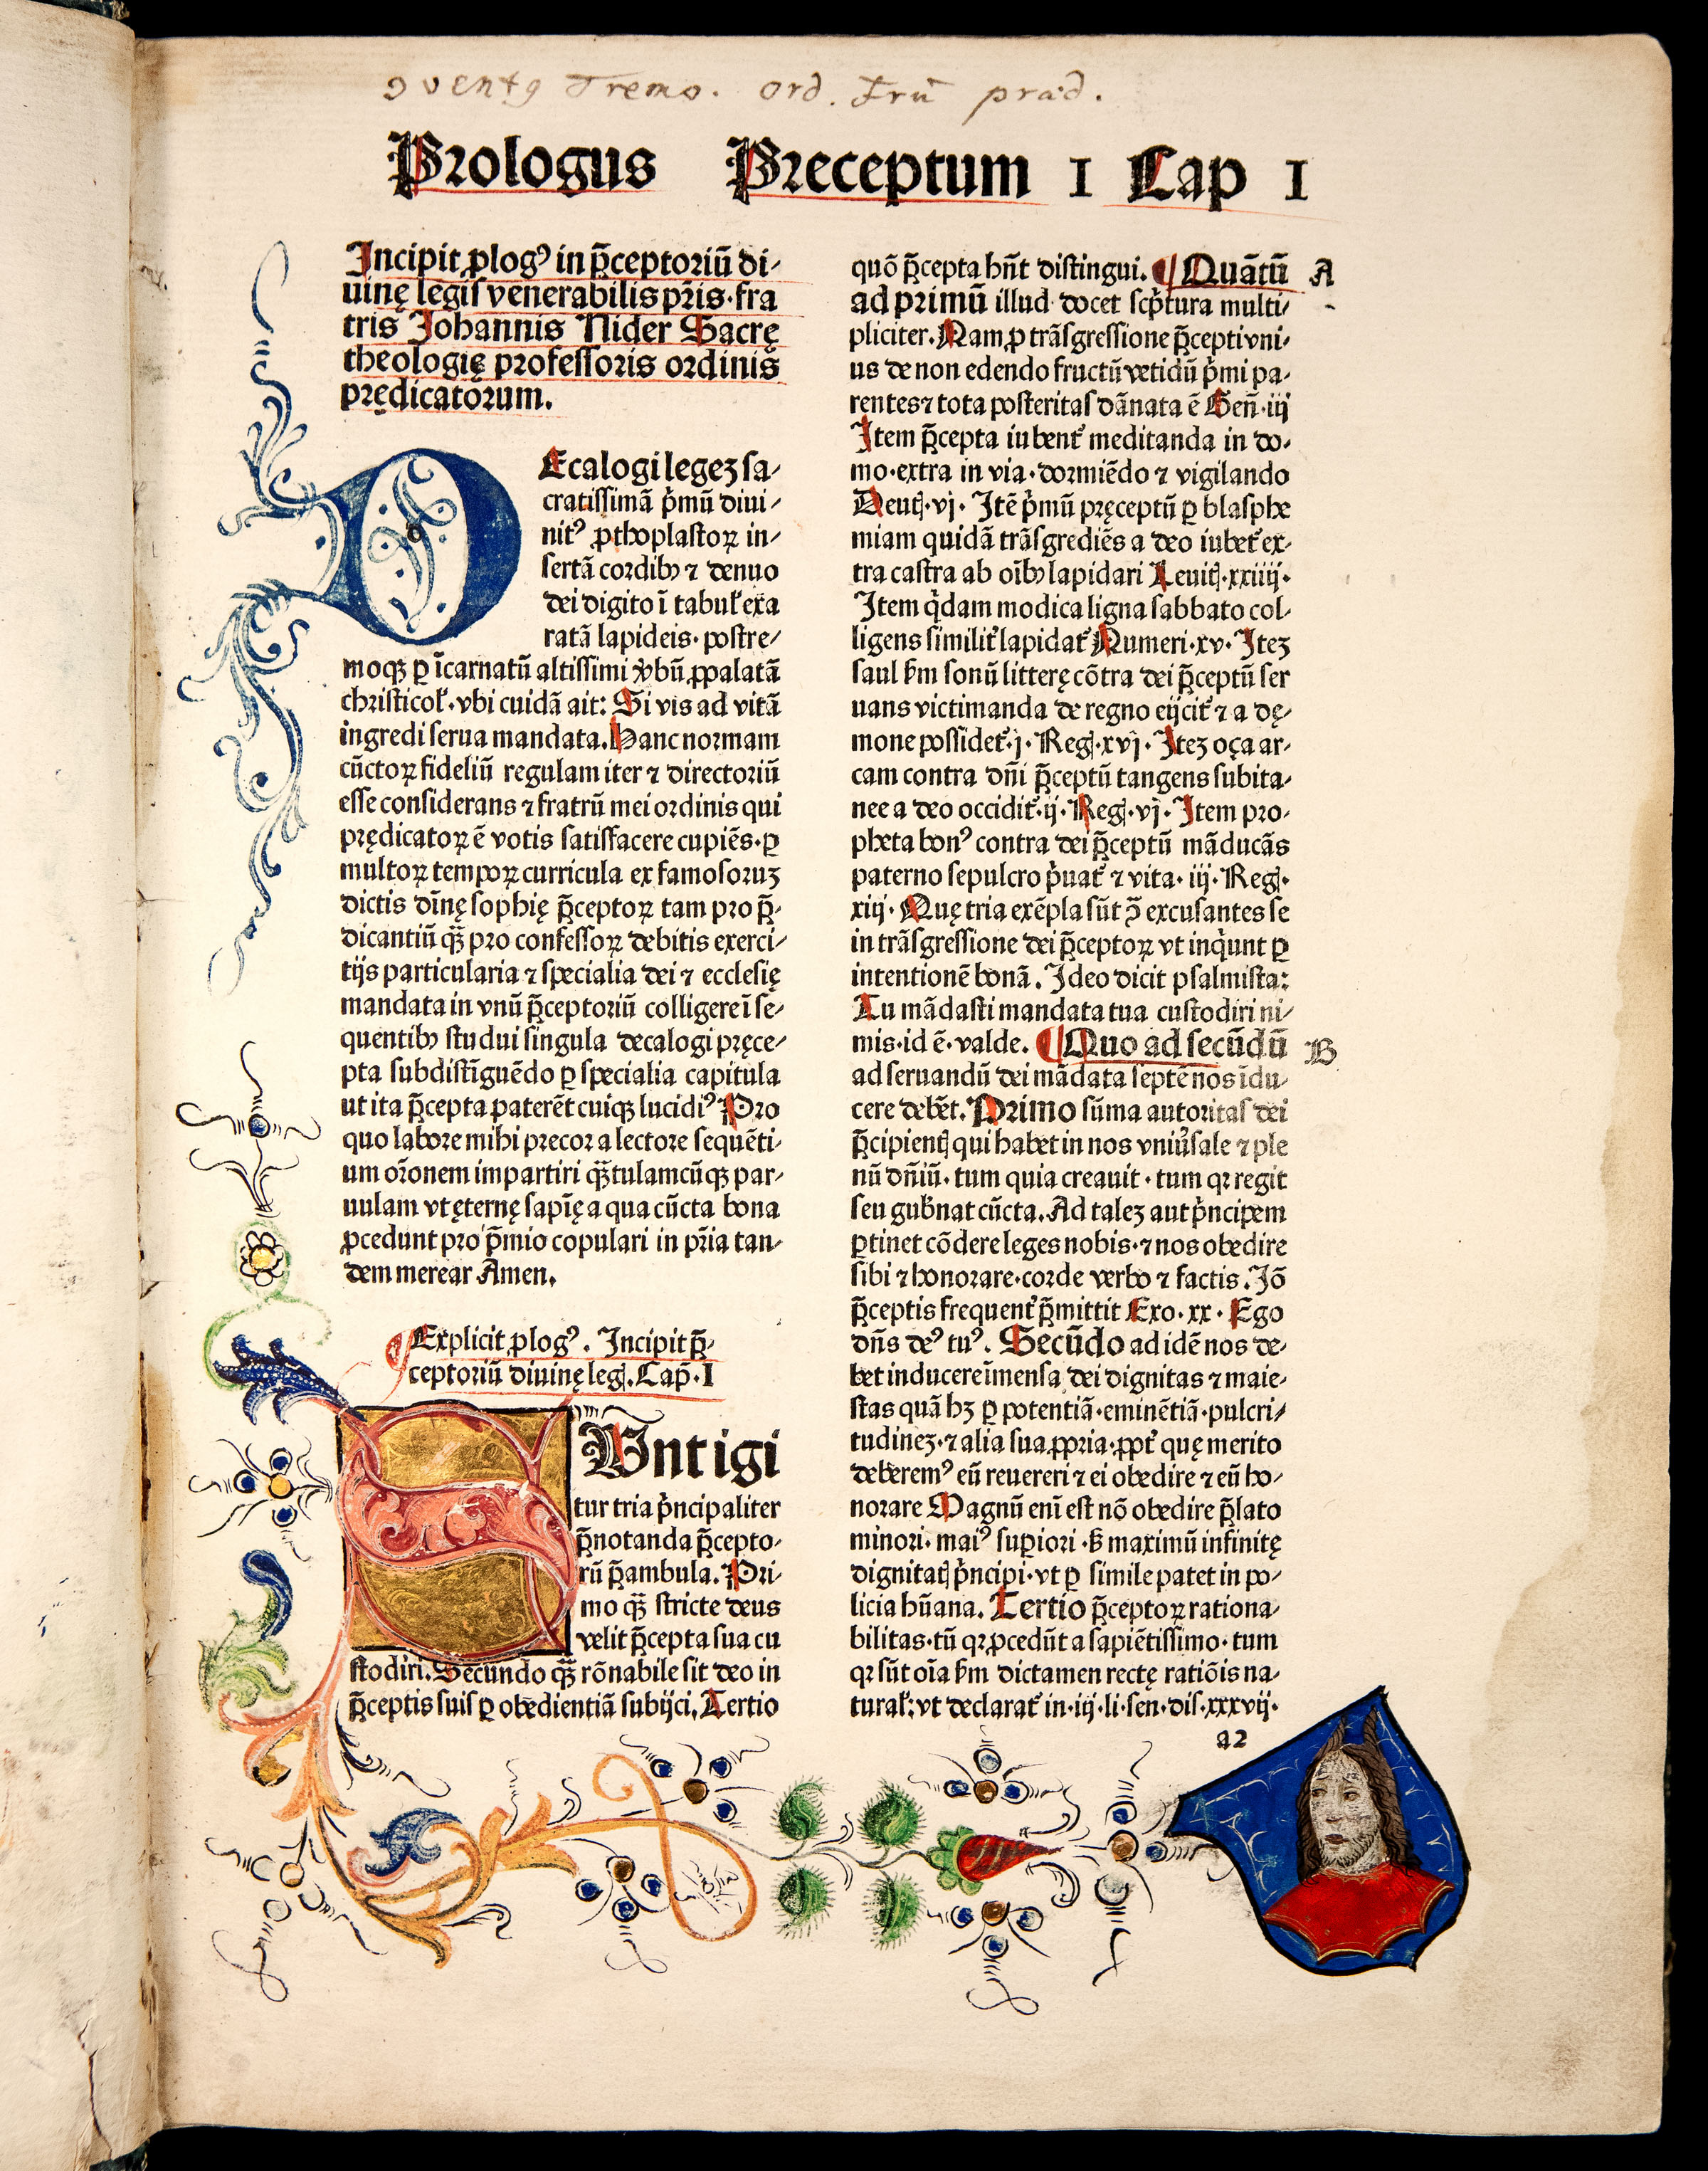 ꝯventꝯ Tremo. ord. Fru̅ præd.
Prologus Preceptum I Cap I
Incipit ꝓlogꝰ in p̄ceptoriū di⸗
uinę legis venerabilis pr̄is·fra
tris Johannis Nider Sacrę
theologię professoris ordinis
prędicatorum.
DEcalogi legeʒ sa⸗
cratissimā pͥmū diui⸗
nitꝰ ꝓthoplastoꝝ in⸗
sertā cordibꝰ ⁊ denuo
dei digito ī tabul̕ exa
ratā lapideis· postre⸗
moqꝫ ꝑ īcarnatū altissimi v̾bū ꝓpalatā
christicol̕·vbi cuidā ait: Si vis ad vitā
ingredi serua mandata. Hanc normam
cūctoꝝ fideliū regulam iter ⁊ directoriū
esse considerans ⁊ fratrū mei ordinis qui
prędicatoꝝ ē votis satisfacere cupiēs·ꝑ
multoꝝ tempoꝝ curricula ex famosoruʒ
dictis dīnę sophię p̄ceptoꝝ tam pro p̄⸗
dicantiū qꝫ̄ pro confessoꝝ debitis exerci⸗
tijs particularia ⁊ specialia dei ⁊ ecclesię
mandata in vnū p̄ceptoriū colligere ī se⸗
quentibꝰ studui singula decalogi pręce⸗
pta subdistīguēdo ꝑ specialia capitula
ut ita p̄cepta paterēt cuiqꝫ lucidiꝰ Pro
quo labore mihi precor a lectore sequēti⸗
um or̄onem impartiri qꝫ̄tulamcūqꝫ par⸗
uulam vt ęternę sapīę a qua cūcta bona
ꝓcedunt pro p̄mio copulari in pr̄ia tan⸗
dem merear Amen.
¶ Explicit ꝓlogꝰ. Incipit p̄⸗
ceptoriū diuinę legꝭ. Cap̄·I
SVnt igi
tur tria pͥncipaliter
p̄notanda p̄cepto⸗
rū p̄ambula. Pri⸗
mo qꝫ̄ stricte deus
velit p̄cepta sua cu
stodiri. Secundo qꝫ̄ rōnabile sit deo in
p̄ceptis suis ꝑ obedientiā subijci. Tertio
quō p̄cepta hn̄t distingui. ¶ Quātū A
ad primū illud docet scpͥtura multi⸗
pliciter. Nam ꝓ trāsgressione p̄cepti vni⸗
us de non edendo fructū vetidū pͥmi pa⸗
rentes ⁊ tota posteritas dānata ē Gen̄·iij
Item p̄cepta iubent᷑ meditanda in do⸗
mo·extra in via·dormiēdo ⁊ vigilando
Deutꝭ·vj· Itē pͥmū pręceptū ꝑ blasphe
miam quidā trāsgrediēs a deo iubet᷑ ex⸗
tra castra ab oībꝰ lapidari Leuitꝭ·xxiiij·
Item qͥdam modica ligna sabbato col⸗
ligens similit᷑ lapidat᷑ Numeri·xv· Iteʒ
saul ẜm sonū litterę cōtra dei p̄ceptū ser
uans victimanda de regno eijcit᷑ ⁊ a dę⸗
mone possidet᷑·j· Regꝭ·xvj· Iteʒ oça ar⸗
cam contra dn̄i p̄ceptū tangens subita⸗
nee a deo occidit᷑·ij· Regꝭ·vj· Item pro⸗
pheta bonꝰ contra dei p̄ceptū māducās
paterno sepulcro pͥuat᷑ ⁊ vita· iij· Regꝭ·
xiij· Quę tria exēpla sūt ꝯ̄ excusantes se
in trāsgressione dei p̄ceptoꝝ vt inqͥunt ꝑ
intentionē bonā. Ideo dicit psalmista:
Tu mādasti mandata tua custodiri ni⸗
mis·id ē·valde. ¶ Quo ad secūdū B
ad seruandū dei mādata septē nos īdu⸗
cere debēt. Primo sūma autoritas dei
p̄cipientꝭ qui habet in nos vniu̾sale ⁊ ple
nū dn̄iū·tum quia creauit·tum qꝛ regit
seu gub̾nat cūcta. Ad taleʒ aut pͥncipem
ꝑtinet cōdere leges nobis·⁊ nos obedire
sibi ⁊ honorare·corde verbo ⁊ factis. Iō
p̄ceptis frequent᷑ p̄mittit Exo·xx· Ego
dn̄s deꝰ tuꝰ. Secūdo ad idē nos de⸗
bet inducere īmensa dei dignitas ⁊ maie⸗
stas quā hꝫ ꝑ potentiā·eminētiā·pulcri⸗
tudineʒ·⁊ alia sua ꝓpria·ꝓpt᷑ quę merito
deberemꝰ eū reuereri ⁊ ei obedire ⁊ eū ho⸗
norare Magnū enī est nō obedire p̄lato
minori·maiꝰ suꝑiori·ẜ maximū infinitę
dignitatꝭ pͥncipi·vt ꝑ simile patet in po⸗
licia hūana. Tertio p̄ceptoꝝ rationa⸗
bilitas·tū qꝛ ꝓcedūt a sapiētissimo·tum
qꝛ sūt oīa ẜm dictamen rectę ratiōis na⸗
tural̕:vt declarat᷑ in·iij·li·sen·dis·xxxvij·
a2